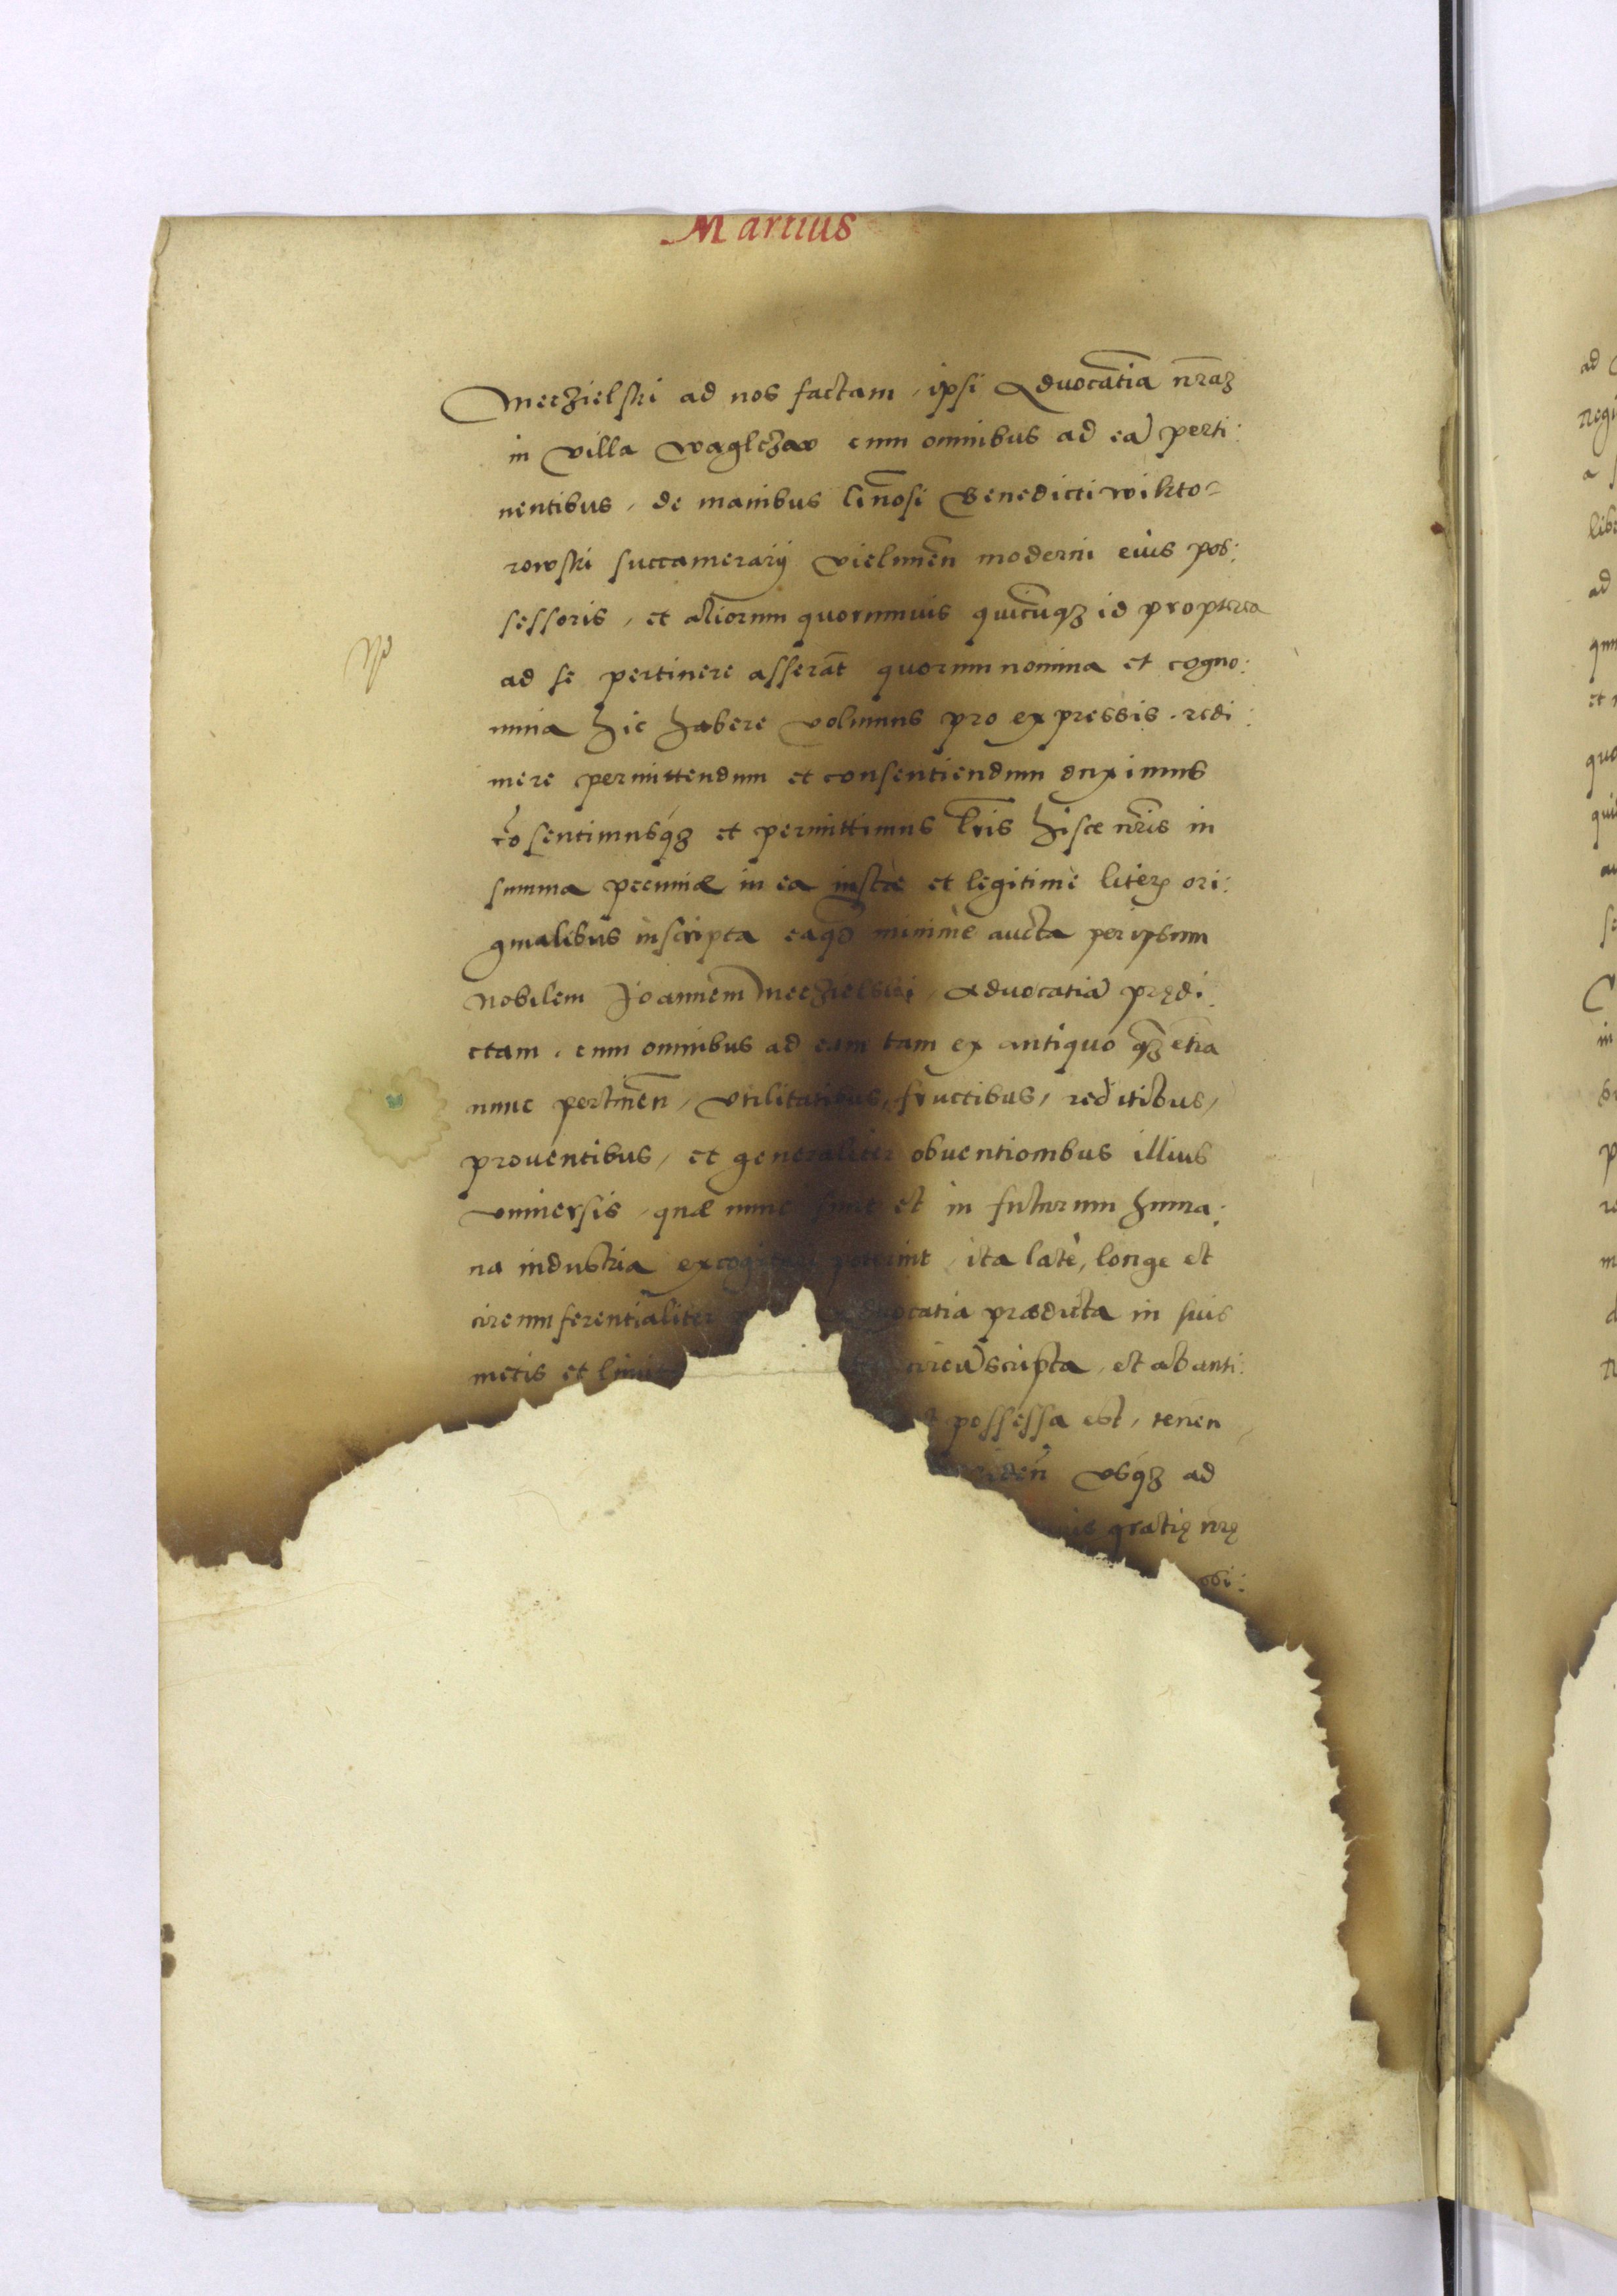 Martius
Meczielski ad nos factam, ipsi Aduocatia nraz
in villa Waglczaw cum omnibus ad eã perti:
nentibus, de manibus Gnosi Benedicti Wikto=
rowski succamerarij Vielunen moderni eius pos:
sessoris, et aliorum quorumuis quicunqz id propterea
ad se pertinere asserat quorum nomina et cogno:
mina hic habere volumus pro expressis. redi:
mere permittendum et consentiendum duximus
cõsentimusqz et permittimus lris hisce nris in
summa pecuniæ in ea iuste et legitimè literis ori:
ginalibus inscripta eaqz minimè aucta per ipsum
Nobilem Joannem Meczielski, Aduocatiã prędi:
ctam, cum omnibus ad eam tam ex antiquo qz etia
nunc pertinen, vtilitatibus, fructibus, reditibus,
prouentibus, et generaliter obuentionibus illius
vniuersis, quæ nunc sunt et in futurum huma:
na industria excogitari poterint, ita latè, longe et
circumferentialiter aduocatia prædicta in suis
metis et limit circũscripta, et ab anti:
possessa est, tenen
vsqz ad
gratię nrę